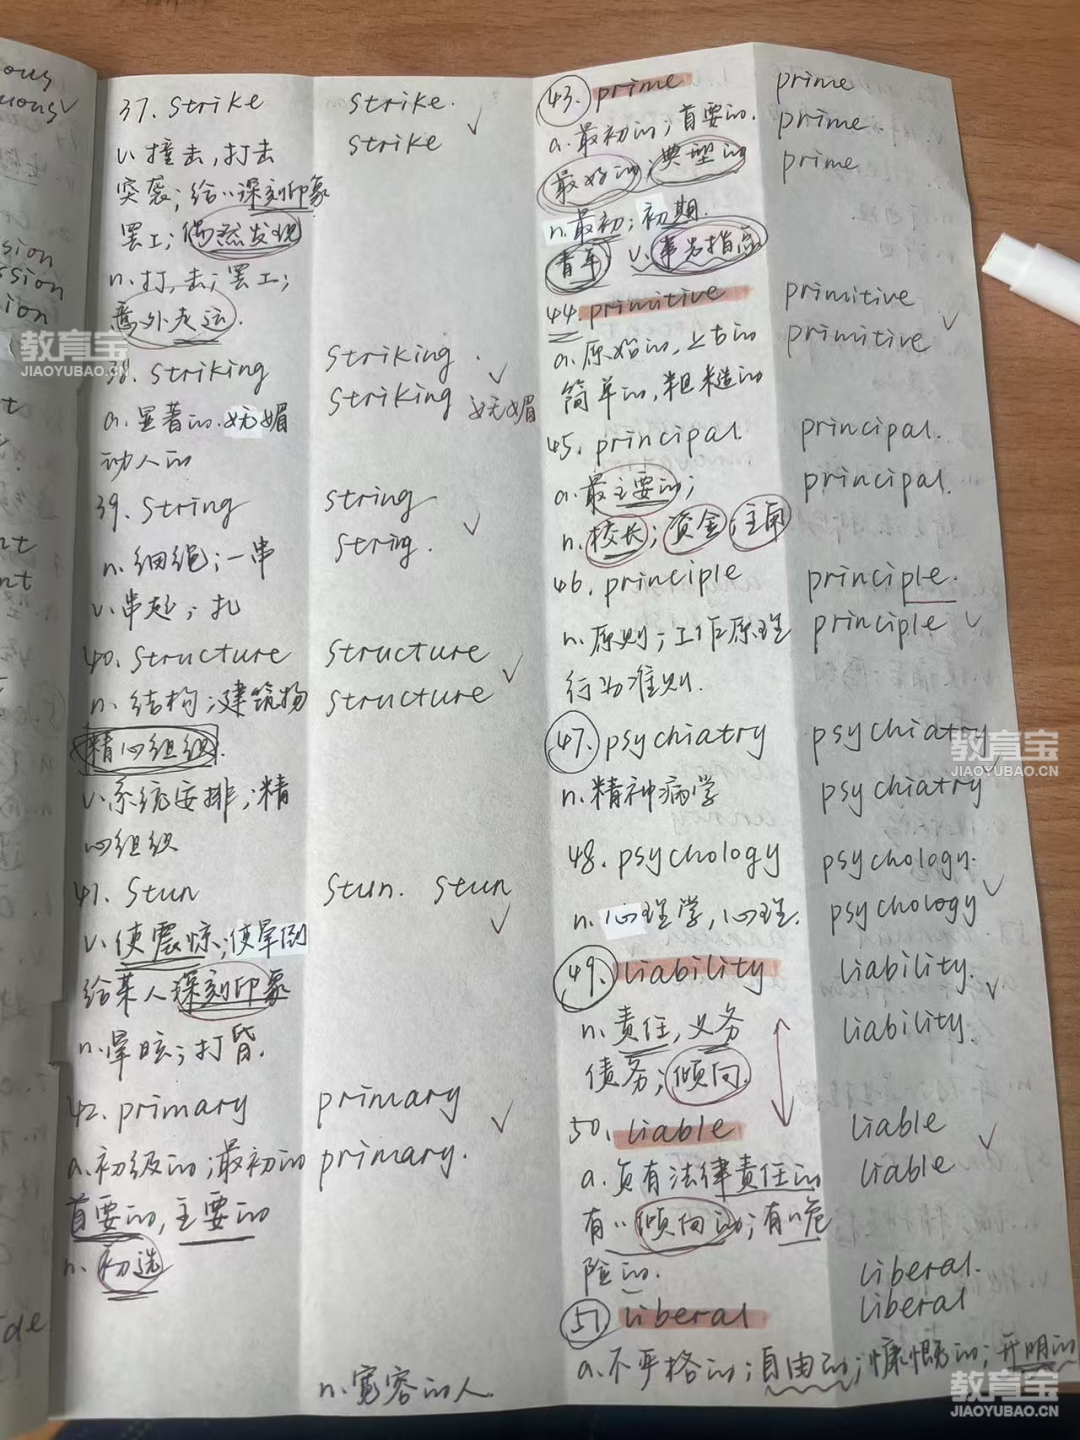 37. strike
v. 撞击，打击
突袭；给…深刻印象
罢工；偶然发现
n. 打，击；罢工；
意外走运.
38. striking
a. 显著的. 妩媚
动人的
39. string
n. 细绳；一串
v. 串起；扎
40. structure
n. 结构；建筑物
精心组织.
v. 系统安排；精
心组织
41. stun
v. 使震惊；使晕倒
给某人深刻印象
n. 晕眩；打昏.
42. primary
a. 初级的；最初的
首要的，主要的
n. 初选
strike.
strike
striking.
striking 妩媚
string
string.
structure
structure
stun. stun
primary
primary.
n. 宽容的人
43. prime
a. 最初的；首要的.
最好的；典型的
n. 最初；初期.
青年 v. 事先指点
44. primitive
a. 原始的，上古的
简单的，粗糙的
45. principal.
a. 最主要的；
n. 校长；资金；主角
46. principle
n. 原则；工作原理
行为准则.
47. psychiatry
n. 精神病学
48. psychology
n. 心理学，心理.
49. liability
n. 责任，义务
债务；倾向.
50. liable
a. 负有法律责任的
有…倾向的；有…危
险的.
51. liberal
a. 不严格的；自由的；慷慨的；开明的
prime
prime.
prime
primitive
primitive
principal.
principal.
principle.
principle
psychiatry
psychiatry
psychology.
psychology
liability.
liability.
liable
liable
liberal.
liberal
ous
uous
sion
ssion
ion
t
nt
nt
de
教育宝
JIAOYUBAO.CN
教育宝
JIAOYUBAO.CN
教育宝
JIAOYUBAO.CN